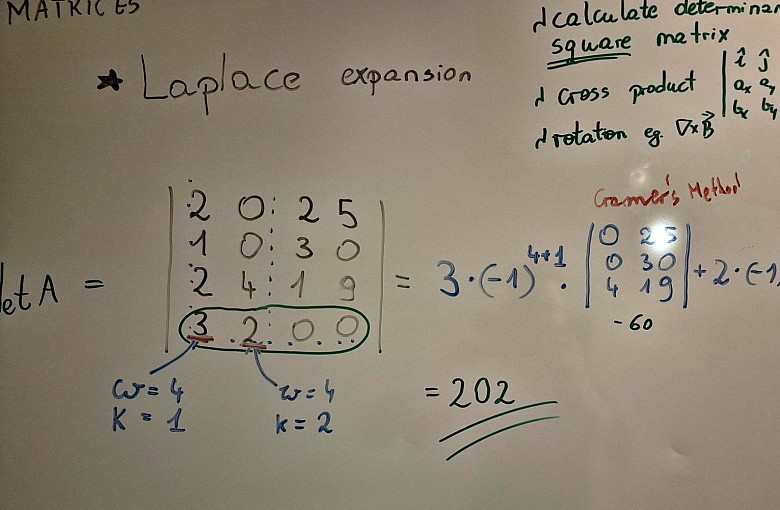 MATRICES
* Laplace expansion
calculate determinan
square matrix
cross product | î ĵ
aₓ aᵧ
bₓ bᵧ
rotation eg. ∇×B⃗
Cramer's Method
det A = | 2 0 2 5 | = 3·(-1)⁴⁺¹ · | 0 2 5 | + 2·(-1)
1 0 3 0
0 3 0
2 4 1 9
4 1 9
3 2 0 0
-60
w=4 w=4
K=1 k=2
= 202